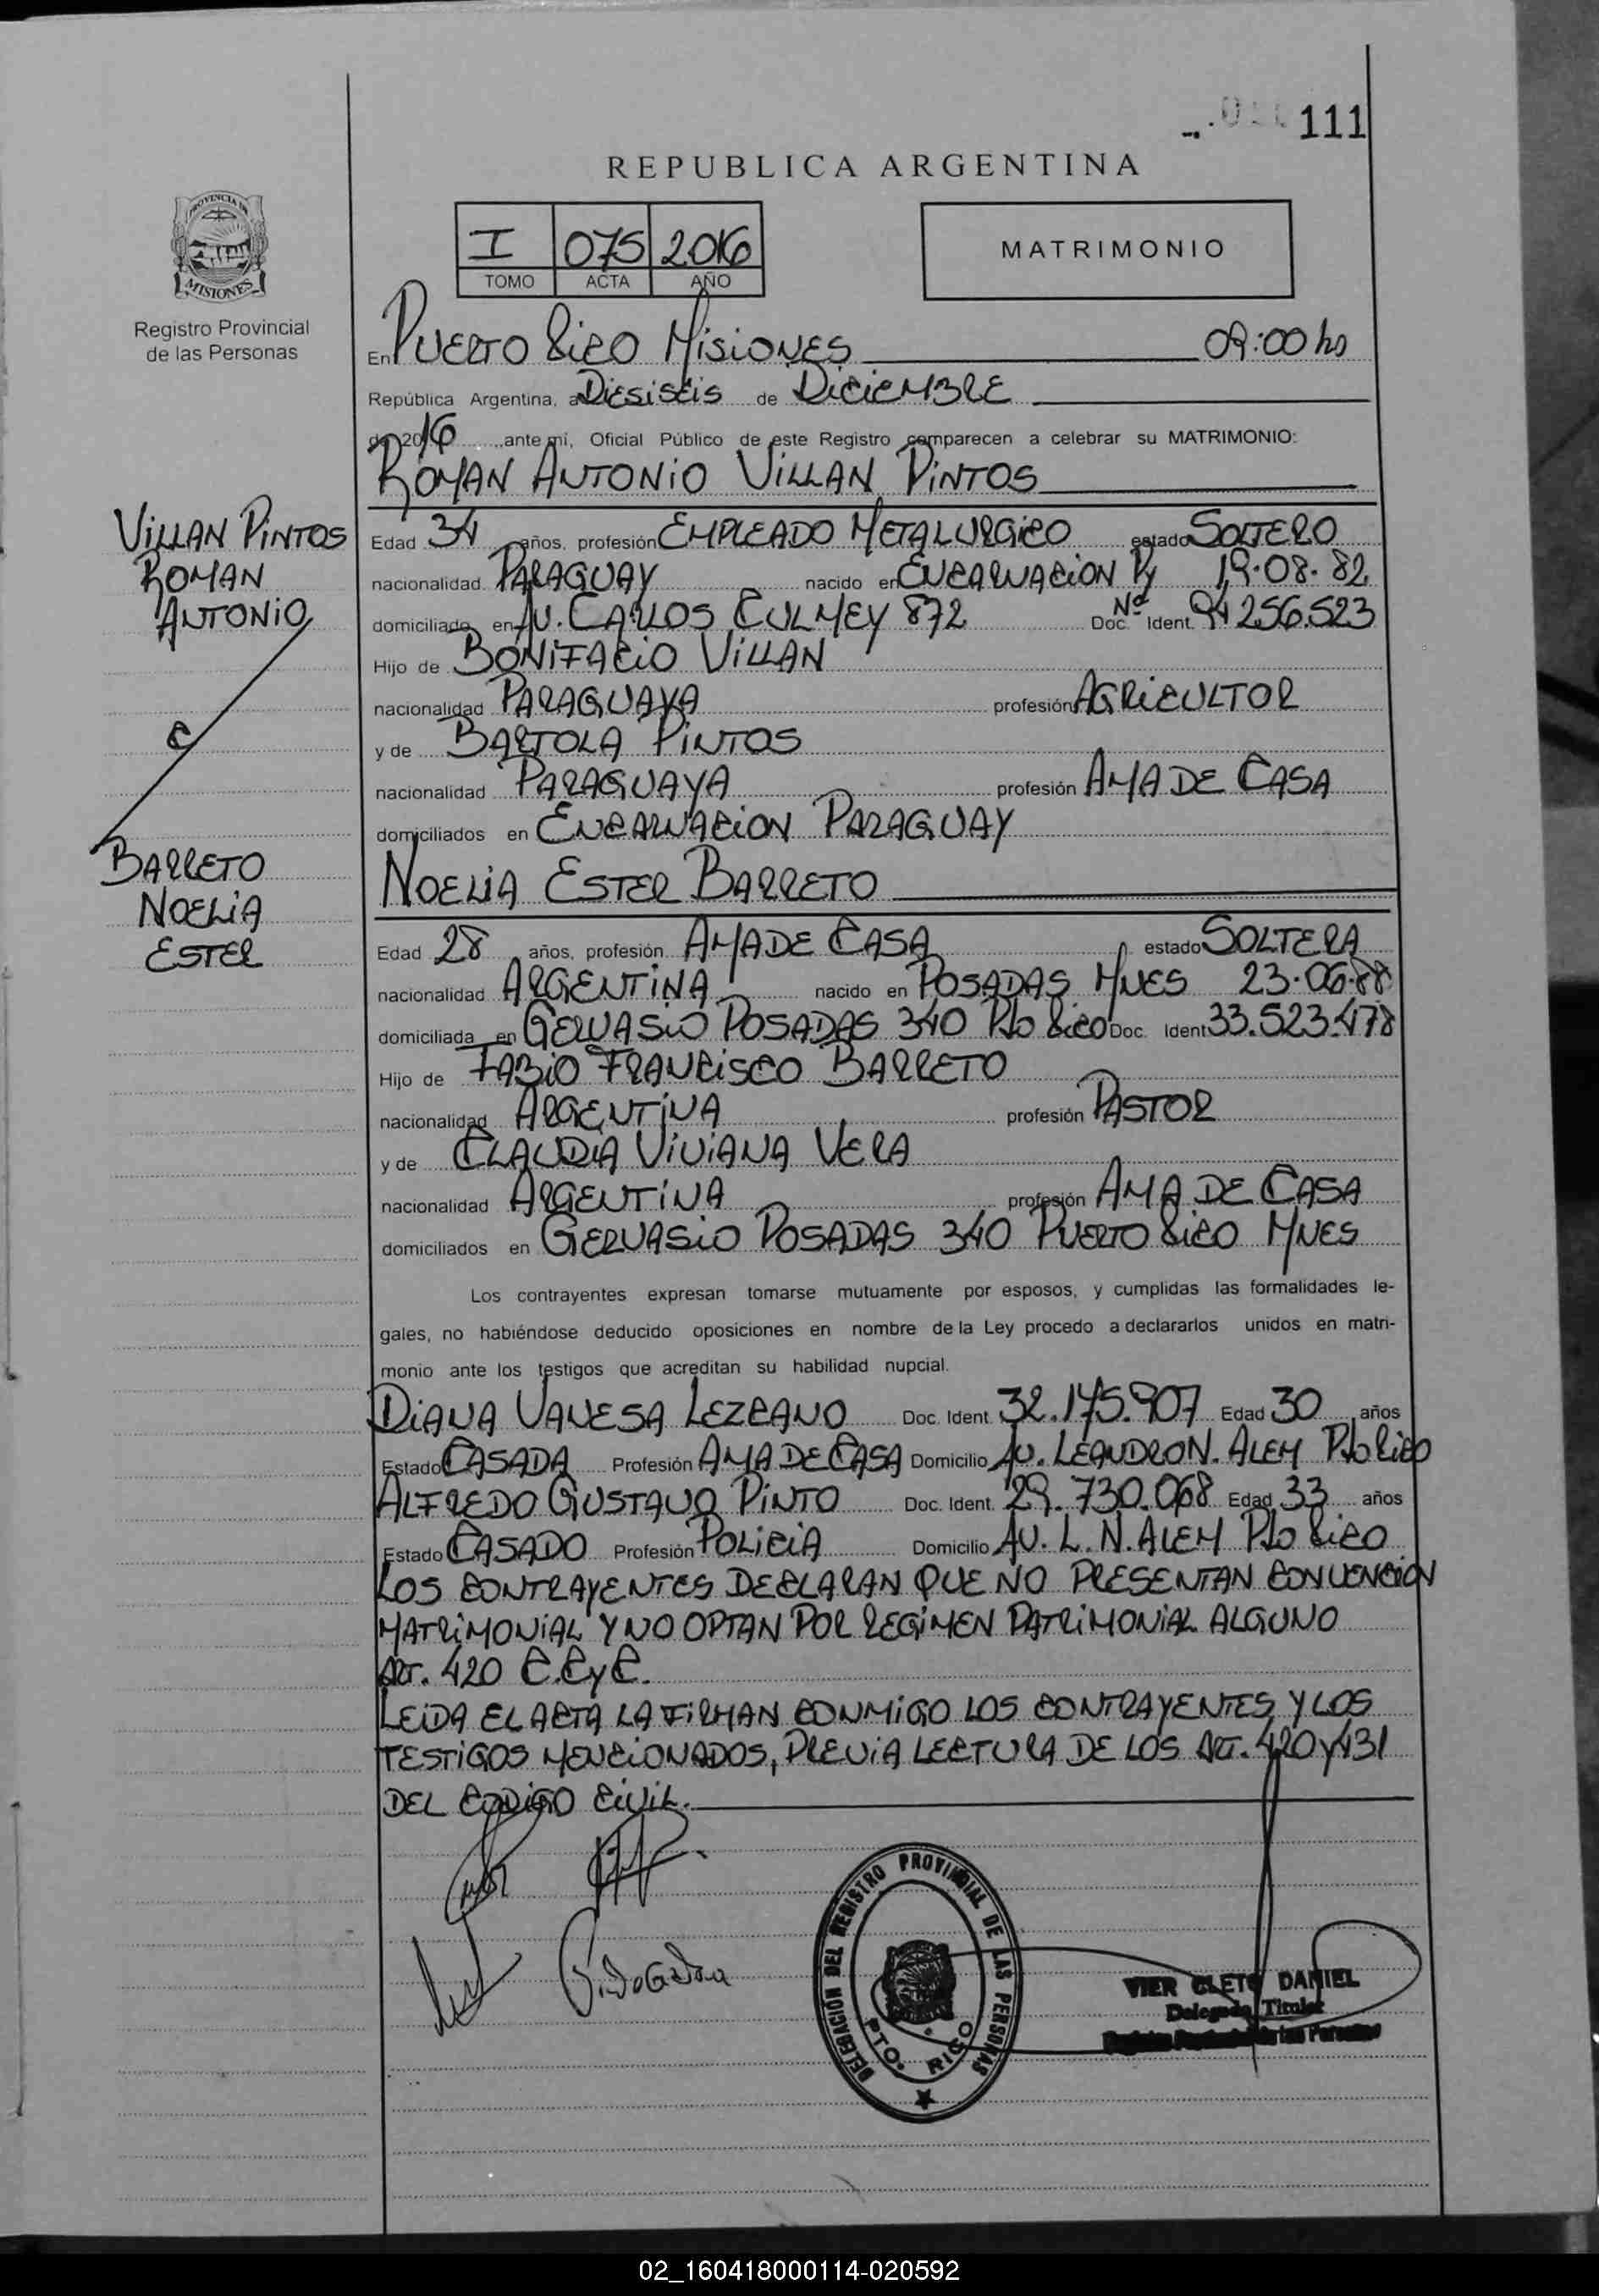 111
REPUBLICA ARGENTINA
PROVINCIA DE
MISIONES
Registro Provincial
de las Personas
I 075 2016
TOMO ACTA AÑO
MATRIMONIO
En PUERTO RICO MISIONES 09:00 hs
República Argentina, a DIESISEIS de DICIEMBRE
de 2016 ante mí, Oficial Público de este Registro comparecen a celebrar su MATRIMONIO:
ROMAN ANTONIO VILLAN PINTOS
VILLAN PINTOS
ROMAN
ANTONIO
Edad 34 años, profesión EMPLEADO METALURGICO estado SOLTERO
nacionalidad PARAGUAY nacido en ENCARNACION Py 19.08.82
domiciliado en AV. CARLOS CULMEY 872 Doc. Nº Ident. 94256.523
Hijo de BONIFACIO VILLAN
nacionalidad PARAGUAYA profesión AGRICULTOR
y de BARTOLA PINTOS
nacionalidad PARAGUAYA profesión AMA DE CASA
domiciliados en ENCARNACION PARAGUAY
BARRETO
NOELIA
ESTER
NOELIA ESTER BARRETO
Edad 28 años, profesión AMA DE CASA estado SOLTERA
nacionalidad ARGENTINA nacido en POSADAS MNES 23.06.88
domiciliada en GERVASIO POSADAS 340 Pto RICO Doc. Ident. 33.523.478
Hijo de FABIO FRANCISCO BARRETO
nacionalidad ARGENTINA profesión PASTOR
y de CLAUDIA VIVIANA VERA
nacionalidad ARGENTINA profesión AMA DE CASA
domiciliados en GERVASIO POSADAS 340 PUERTO RICO MNES
Los contrayentes expresan tomarse mutuamente por esposos, y cumplidas las formalidades le-
gales, no habiéndose deducido oposiciones en nombre de la Ley procedo a declararlos unidos en matri-
monio ante los testigos que acreditan su habilidad nupcial.
DIANA VANESA LEZCANO Doc. Ident. 32.175.907 Edad 30 años
Estado CASADA Profesión AMA DE CASA Domicilio AV. LEANDRO N. ALEM Pto RICO
ALFREDO GUSTAVO PINTO Doc. Ident. 29.730.068 Edad 33 años
Estado CASADO Profesión POLICIA Domicilio AV. L. N. ALEM Pto RICO
LOS CONTRAYENTES DECLARAN QUE NO PRESENTAN CONVENCION
MATRIMONIAL Y NO OPTAN POR REGIMEN PATRIMONIAL ALGUNO
ART. 420 C.C y C.
LEIDA EL ACTA LA FIRMAN CONMIGO LOS CONTRAYENTES Y LOS
TESTIGOS MENCIONADOS, PREVIA LECTURA DE LOS ART. 420 y 431
DEL CODIGO CIVIL.
DELEGACIÓN DEL REGISTRO PROVINCIAL DE LAS PERSONAS
PTO. RICO
VIER CLETO DANIEL
Delegado Titular
Registro Provincial de las Personas
02_160418000114-020592